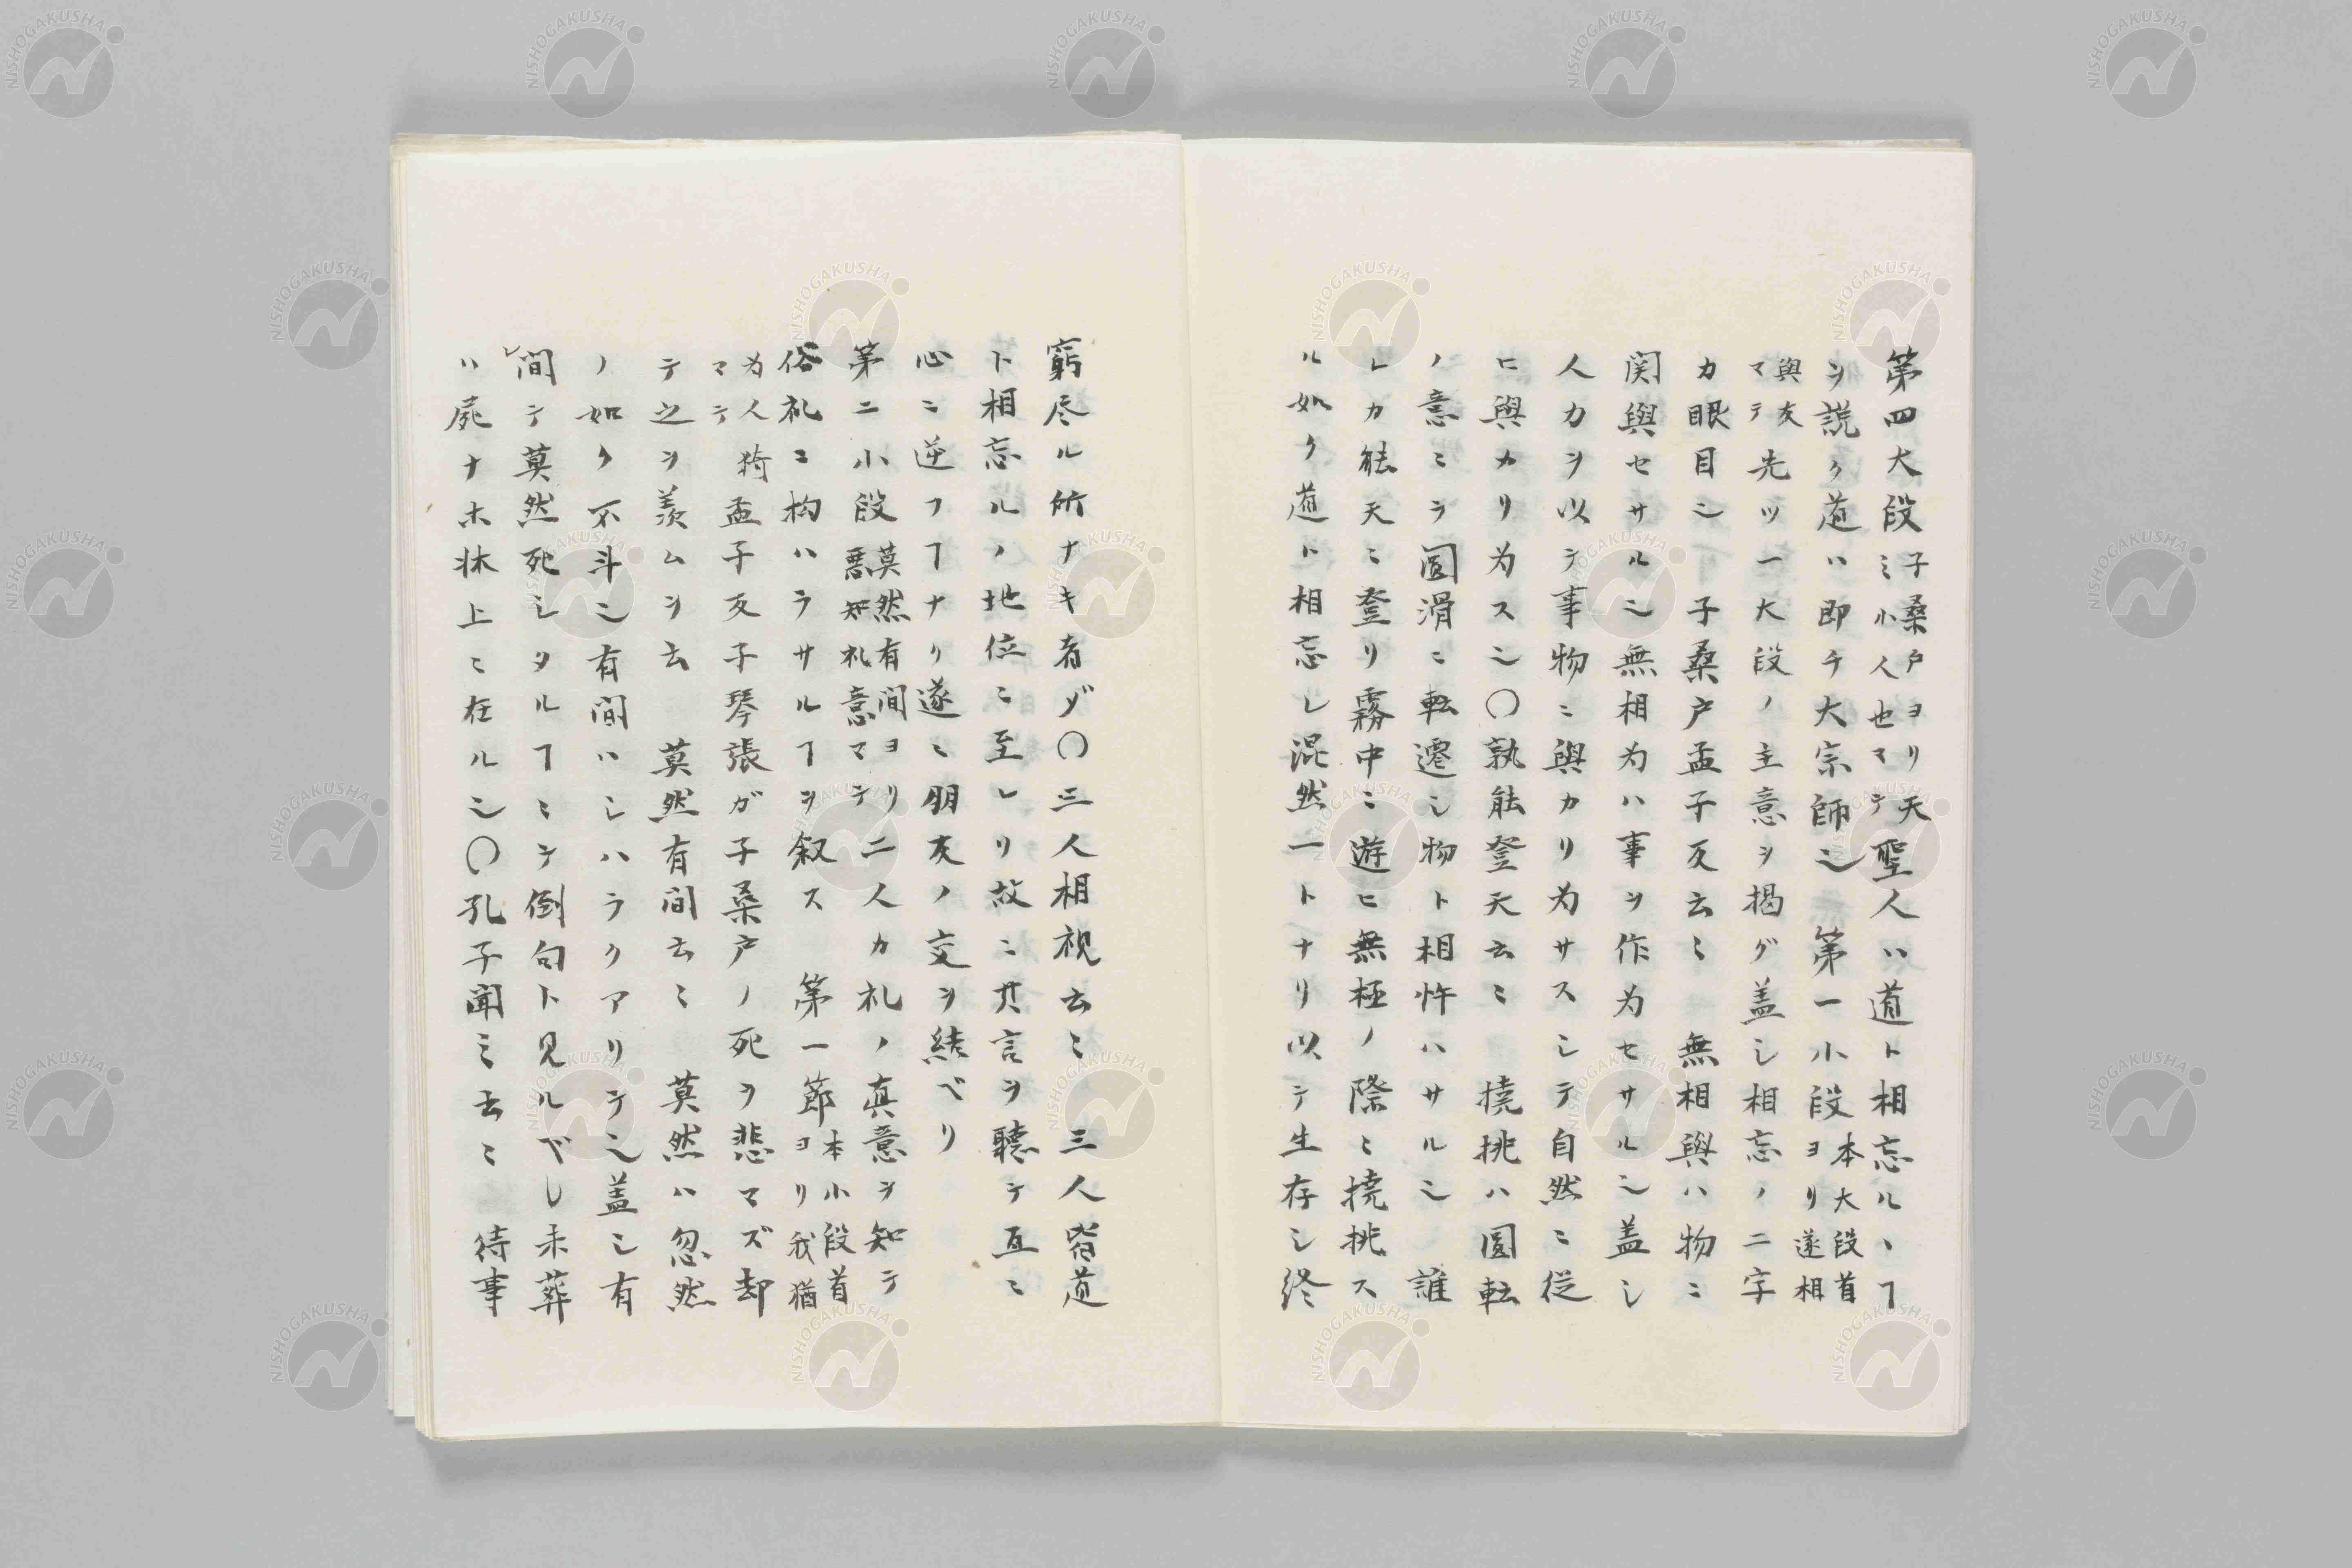 第四大段子桑戸ヨリ天ミ小人也マテ聖人ハ道ト相忘ルヽヿ
ヲ説ク道ハ即チ大宗師ㄋ 第一小段本大段首ヨリ遂相
與友マテ先ツ一大段ノ主意ヲ掲グ盖シ相忘ノ二字
カ眼目ㄋ 子桑戸孟子反云〻 無相與ハ物ニ
関與セサルㄋ無相为ハ事ヲ作为セサルㄋ盖シ
人力ヲ以テ事物ニ與カリ为サスシテ自然ニ従
ヒ與カリ为スㄋ〇孰能登天云〻 撓挑ハ圓転
ノ意ミラ圓滑ニ転遷シ物ト相忤ハサルㄋ 誰
レカ能天ニ登リ霧中ニ遊ヒ無極ノ際ニ撓挑ス
ル如ク道ト相忘レ混然一トナリ以テ生存シ終
窮尽ル所ナキ者ゾ〇三人相視云〻 三人皆道
ト相忘ルノ地位ニ至レリ故ニ其言ヲ聴テ互ニ
心ニ逆フヿナリ遂ニ朋友ノ交ヲ結ベリ
第二小段莫然有間ヨリ悪知礼意マテ二人カ礼ノ真意ヲ知テ
俗礼ニ拘ハラサルヿヲ叙ス 第一節本小段首ヨリ我猶
为人猗マテ 孟子反子琴張ガ子桑戸ノ死ヲ悲マズ却
テ之ヲ羨ムヲ云 莫然有间云〻 莫然ハ忽然
ノ如ク不斗ㄋ有間ハシハラクアリテㄋ盖シ有
間テ莫然死シタルヿミテ倒句ト見ルベシ未葬
ハ屍ナホ牀上ニ在ルㄋ〇孔子聞ミ云〻 待事